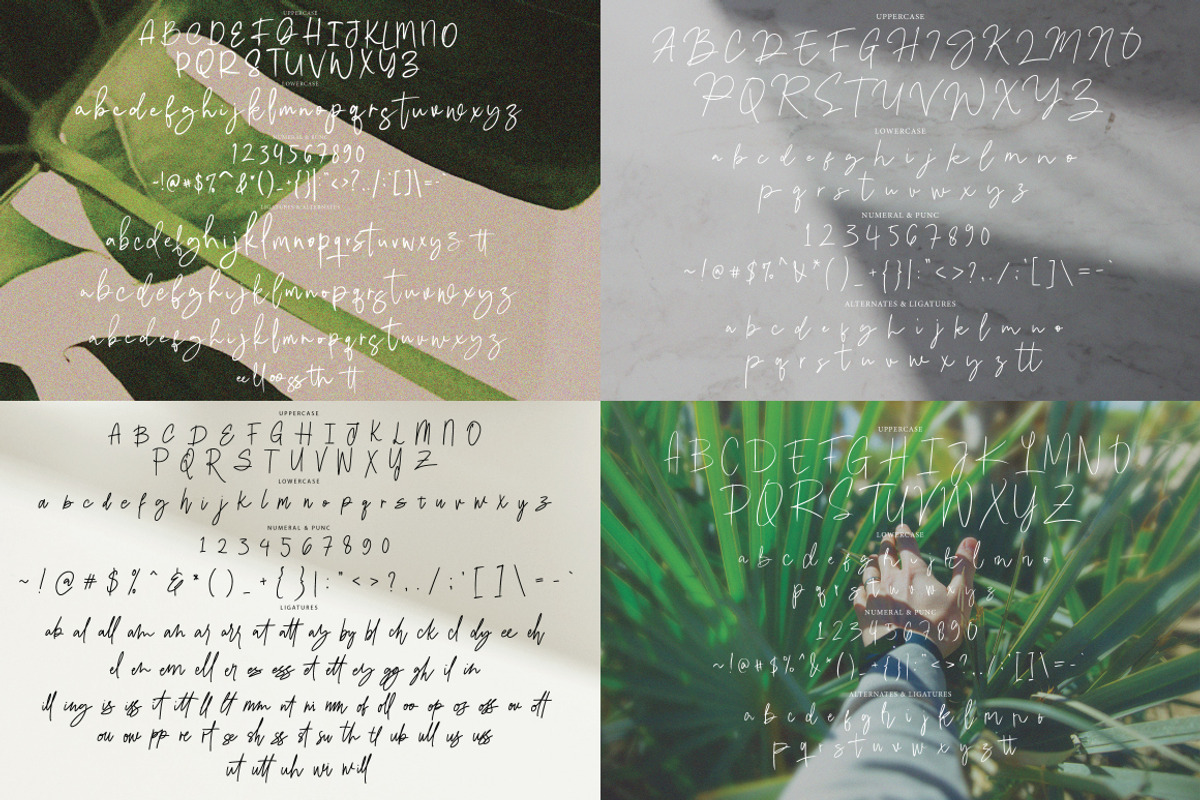 UPPERCASE
ABCDEFGHIJKLMNO
PQRSTUVWXYZ
LOWERCASE
abcdefghijklmnopqrstuvwxyz
NUMERAL & PUNC
1234567890
~!@#$%^&*()_+{}|:"<>?,./;'[]\=-`
LIGATURES & ALTERNATES
abcdefghijklmnopqrstuvwxyz tt
abcdefghijklmnopqrstuvwxyz
abcdefghijklmnopqrstuvwxyz
ee ll oo ss th tt
UPPERCASE
ABCDEFGHIJKLMNO
PQRSTUVWXYZ
LOWERCASE
a b c d e f g h i j k l m n o
p q r s t u v w x y z
NUMERAL & PUNC
1234567890
~!@#$%^&*()_+{}|:"<>?,./;'[]\=-`
ALTERNATES & LIGATURES
a b c d e f g h i j k l m n o
p q r s t u v w x y z tt
UPPERCASE
A B C D E F G H I J K L M N O
P Q R S T U V W X Y Z
LOWERCASE
a b c d e f g h i j k l m n o p q r s t u v w x y z
NUMERAL & PUNC
1 2 3 4 5 6 7 8 9 0
~ ! @ # $ % ^ & * ( ) _ + { } | : " < > ? , . / ; ' [ ] \ = - `
LIGATURES
ab al all am an ar arr at att ay by bl ch ck cl dy ee eh
el en enn ell er es ess et ett ey gg gh il in
ill ing is iss it itt ll lt mm nt ni nn of oll oo op os oss ou ott
ou ow pp re rt se sh ss st su th tl ub ull us uss
ut utt uh wi will
UPPERCASE
ABCDEFGHIJKLMNO
PQRSTUVWXYZ
LOWERCASE
a b c d e f g h i j k l m n o
p q r s t u v w x y z
NUMERAL & PUNC
1234567890
~!@#$%^&*()_+{}|:"<>?,./;'[]\=-`
ALTERNATES & LIGATURES
a b c d e f g h i j k l m n o
p q r s t u v w x y z tt